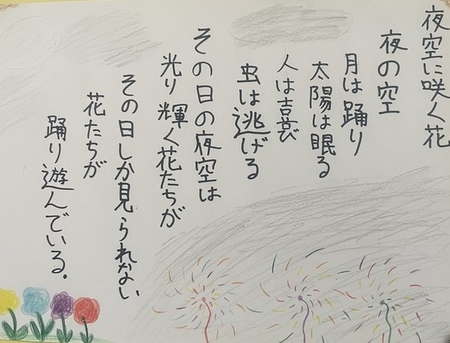 夜空に咲く花
夜の空
月は踊り
太陽は眠る
人は喜び
虫は逃げる
その日の夜空は
光り輝く花たちが
その日しか見られない
花たちが
踊り遊んでいる。